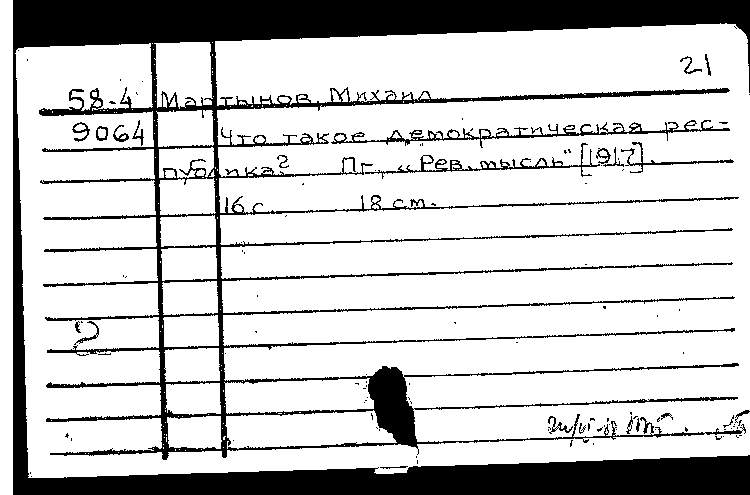 21
58-4 Мартынов, Михаил
9064 Что такое демократическая рес-
публика? Пг., „Рев. мысль" [1917].
16 с. 18 см.
2